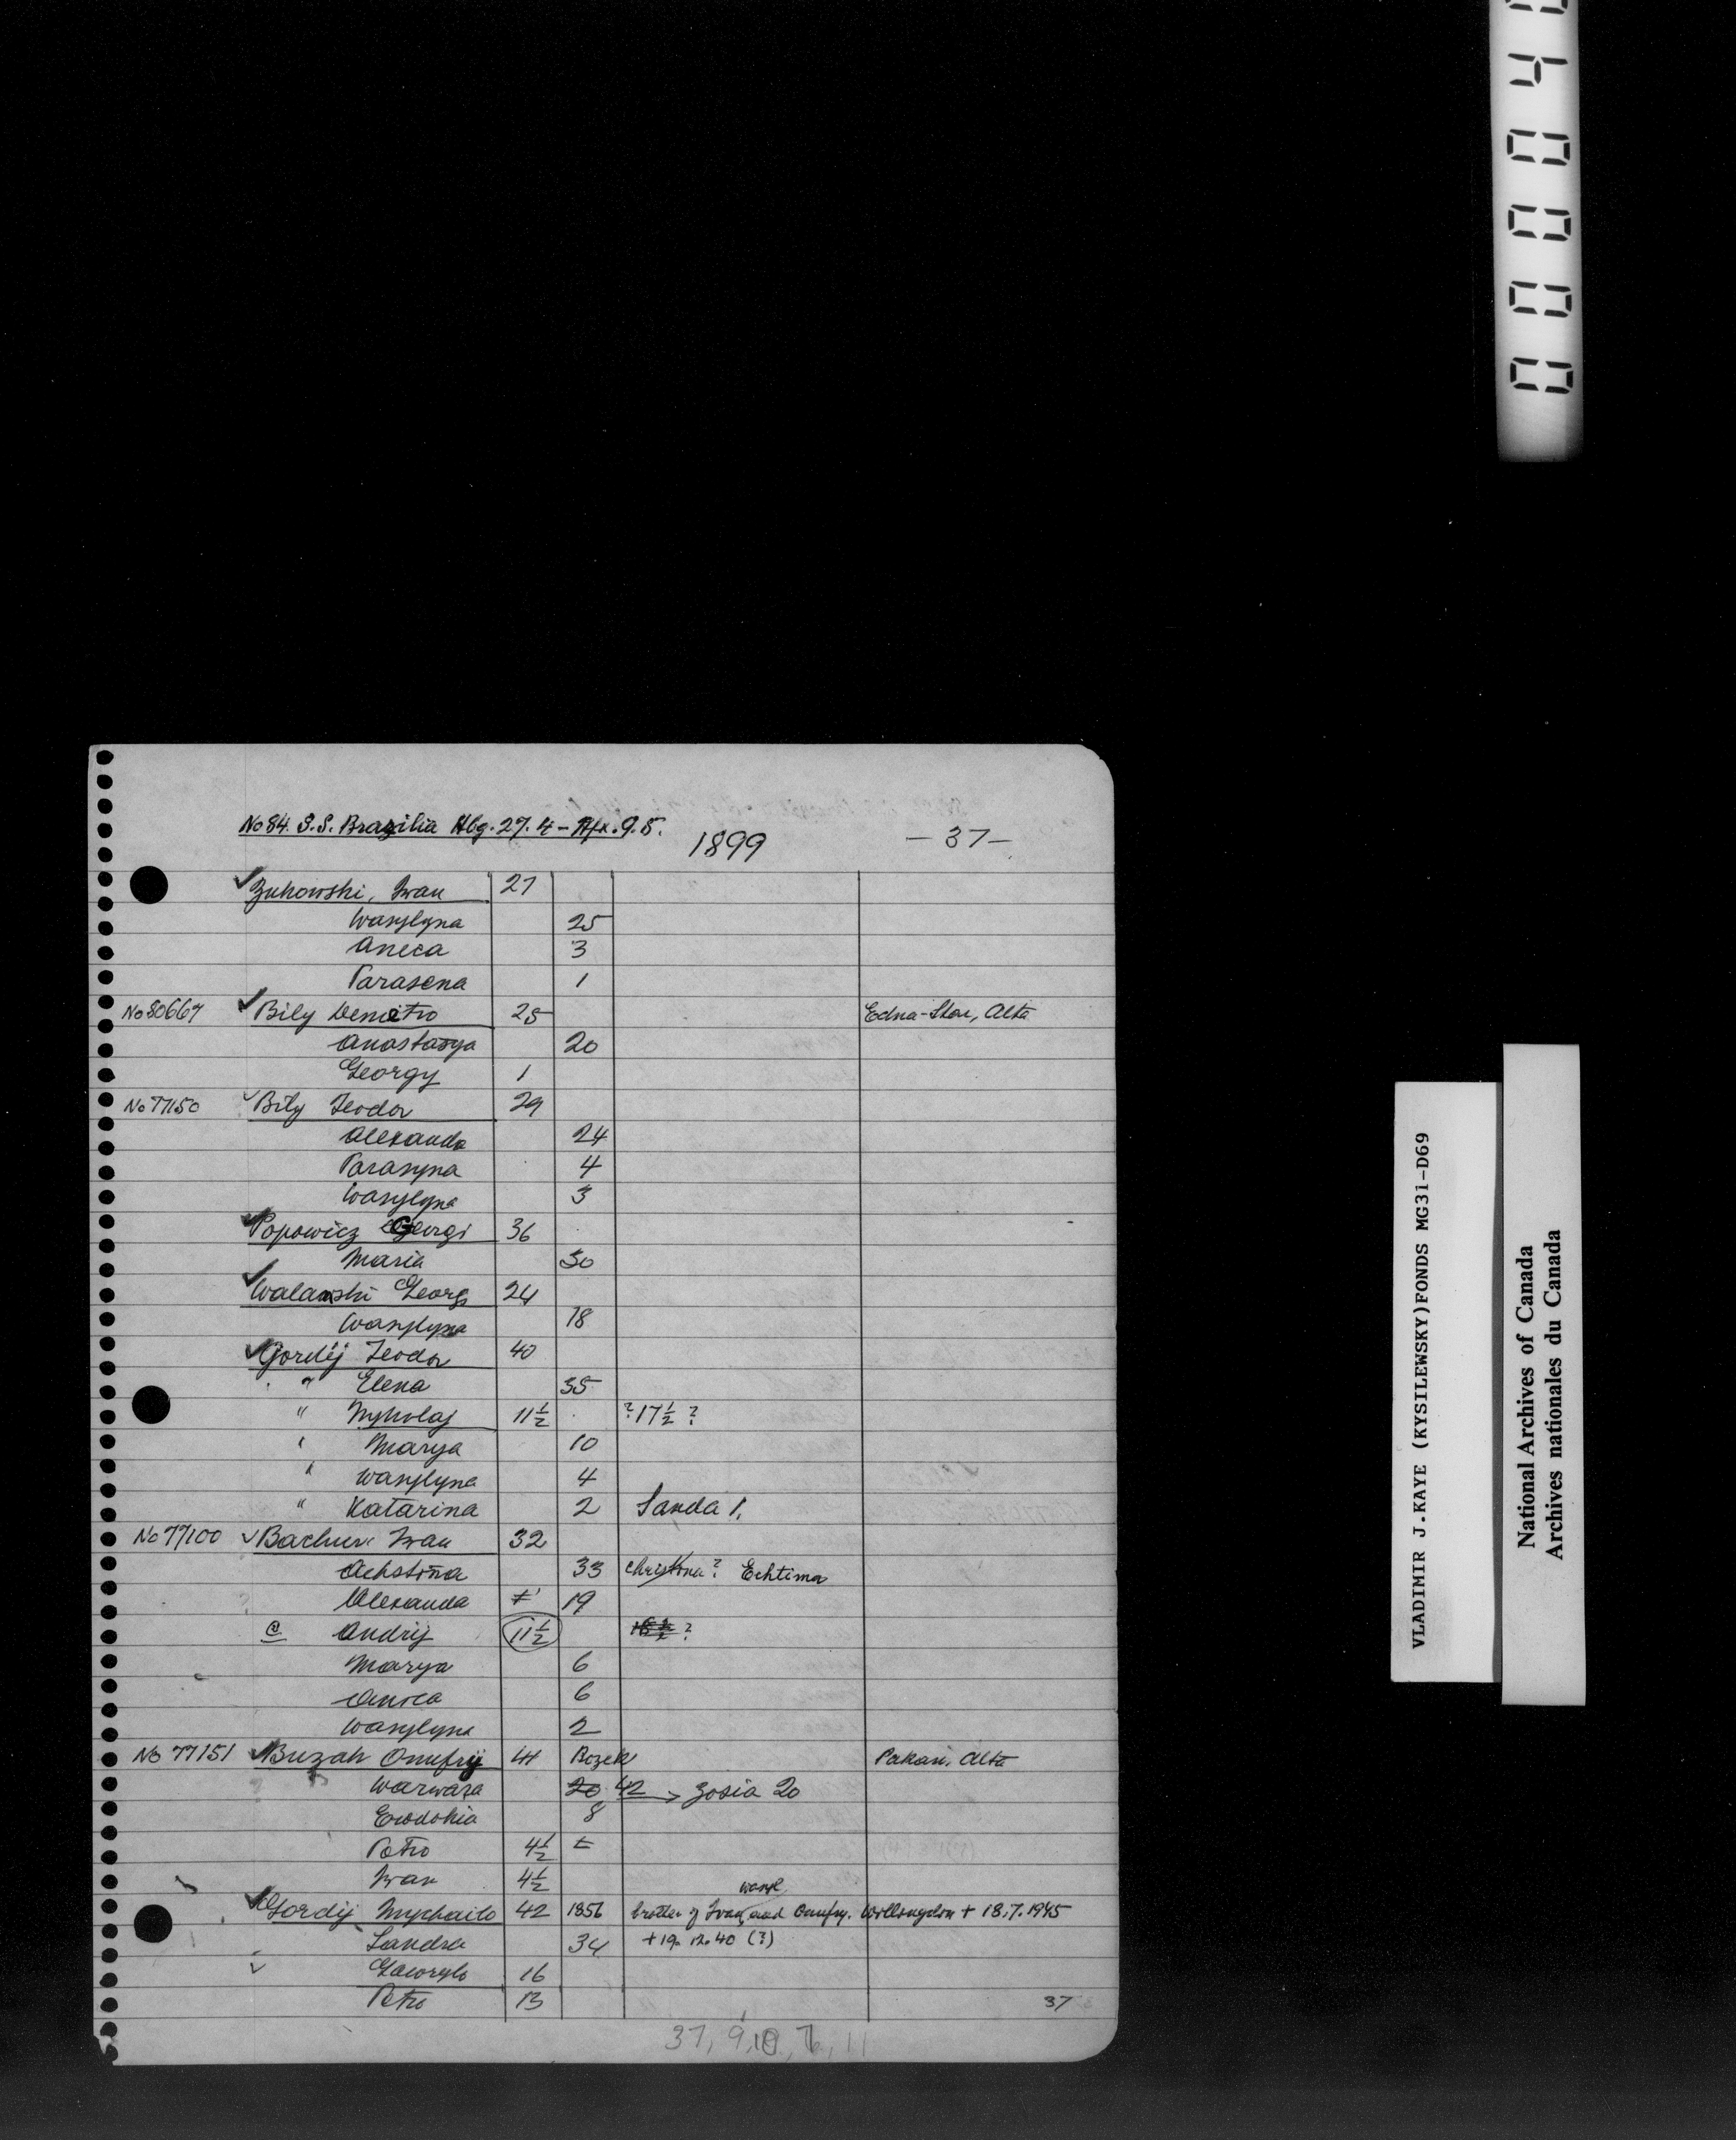 No 84. S.S. Brazilia Hbg. 27.4 - Hfx. 9.5.
1899
- 37 -
Zukowski, Iwan 27
Wasylyna 25
Aneca 3
Parasena 1
No 80667 Bily Demetro 25 Edna-Star, Alta
Anastasya 20
Georgy 1
No 77150 Bily Teodor 29
Alexanda 24
Parasyna 4
Wasylyna 3
Popowicz Georgi 36
Maria 30
Walanski Georg 24
Wasylyna 18
Gordij Teodor 40
" Elena 35
" Mykolaj 11½ ? 17½ ?
" Marya 10
" Wasylyna 4
" Katarina 2 Sanda 1.
No 77100 Iwan 32
Achstina 33 Christina? Echtima
Alexanda 19
@ Andrij 11½ ?
Marya 6
Anica 6
Wasylyna 2
No 77151 Buzak Onufrij 41 Bozek Pakan, Alta
Warwara 20 42 → Zosia 20
Ewdokia 8
Petro 4½
Iwan 4½
Wasyl
Gordij Mykhailo 42 1856 brother of Ivan, and Onufry. Willingdon + 18.7.1945
Sandra 34 + 19.12.40 (?)
Gawrylo 16
Petro 13
37
37, 9, 10, 7, 11
VLADIMIR J.KAYE (KYSILEWSKY)FONDS MG31-D69
National Archives of Canada
Archives nationales du Canada